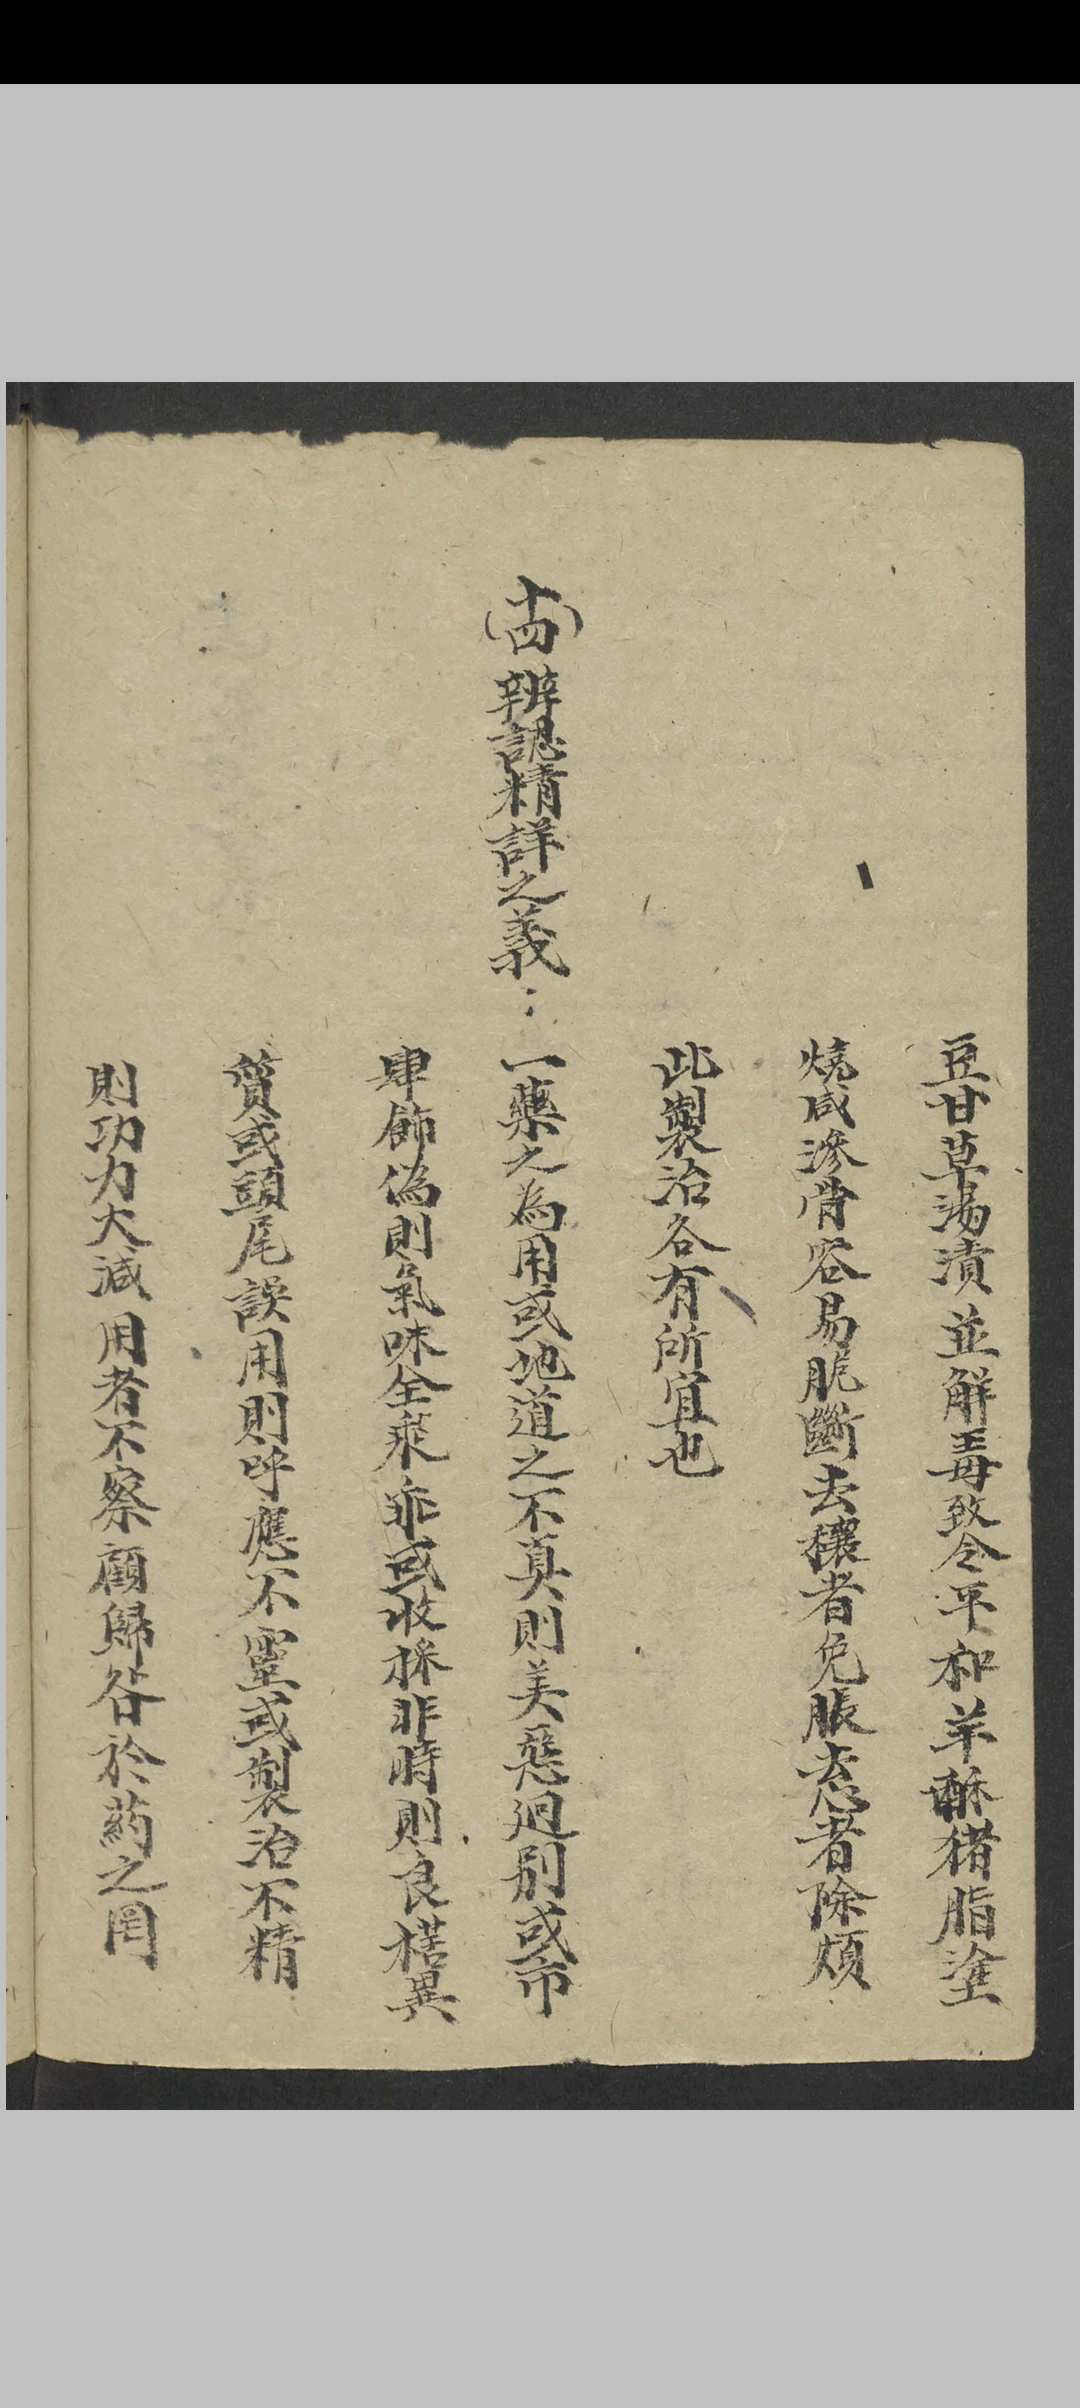 豆甘草湯漬並解毒致令平和羊酥猪脂塗
燒咸滲骨容易脆斷去穰者免脹去心者除煩
此製治各有所宜也
(十四)辨認精詳之義：一藥之為用或地道之不真則美惡迥別或市
肆餙偽則氣味全乖乖或收採非時則良楛異
質或頭尾誤用則呼應不靈或製治不精
則功力大減用者不察顧歸咎於药之罔